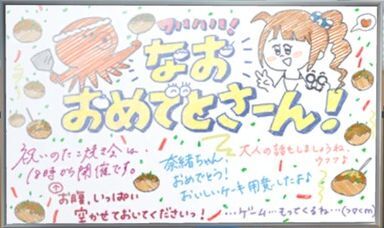 フルハル!
なお
おめでとさーん!
祝いのたこ焼き会は、
18時から開催です。
お腹、いっぱい
空かせておいてくださいっ!
奈緒ちゃん
おめでとう!
おいしいケーキ用意したよ♪
大人の話もしましょうね、
ウフフ♪
…ゲーム…もってくるね…(つのcm)